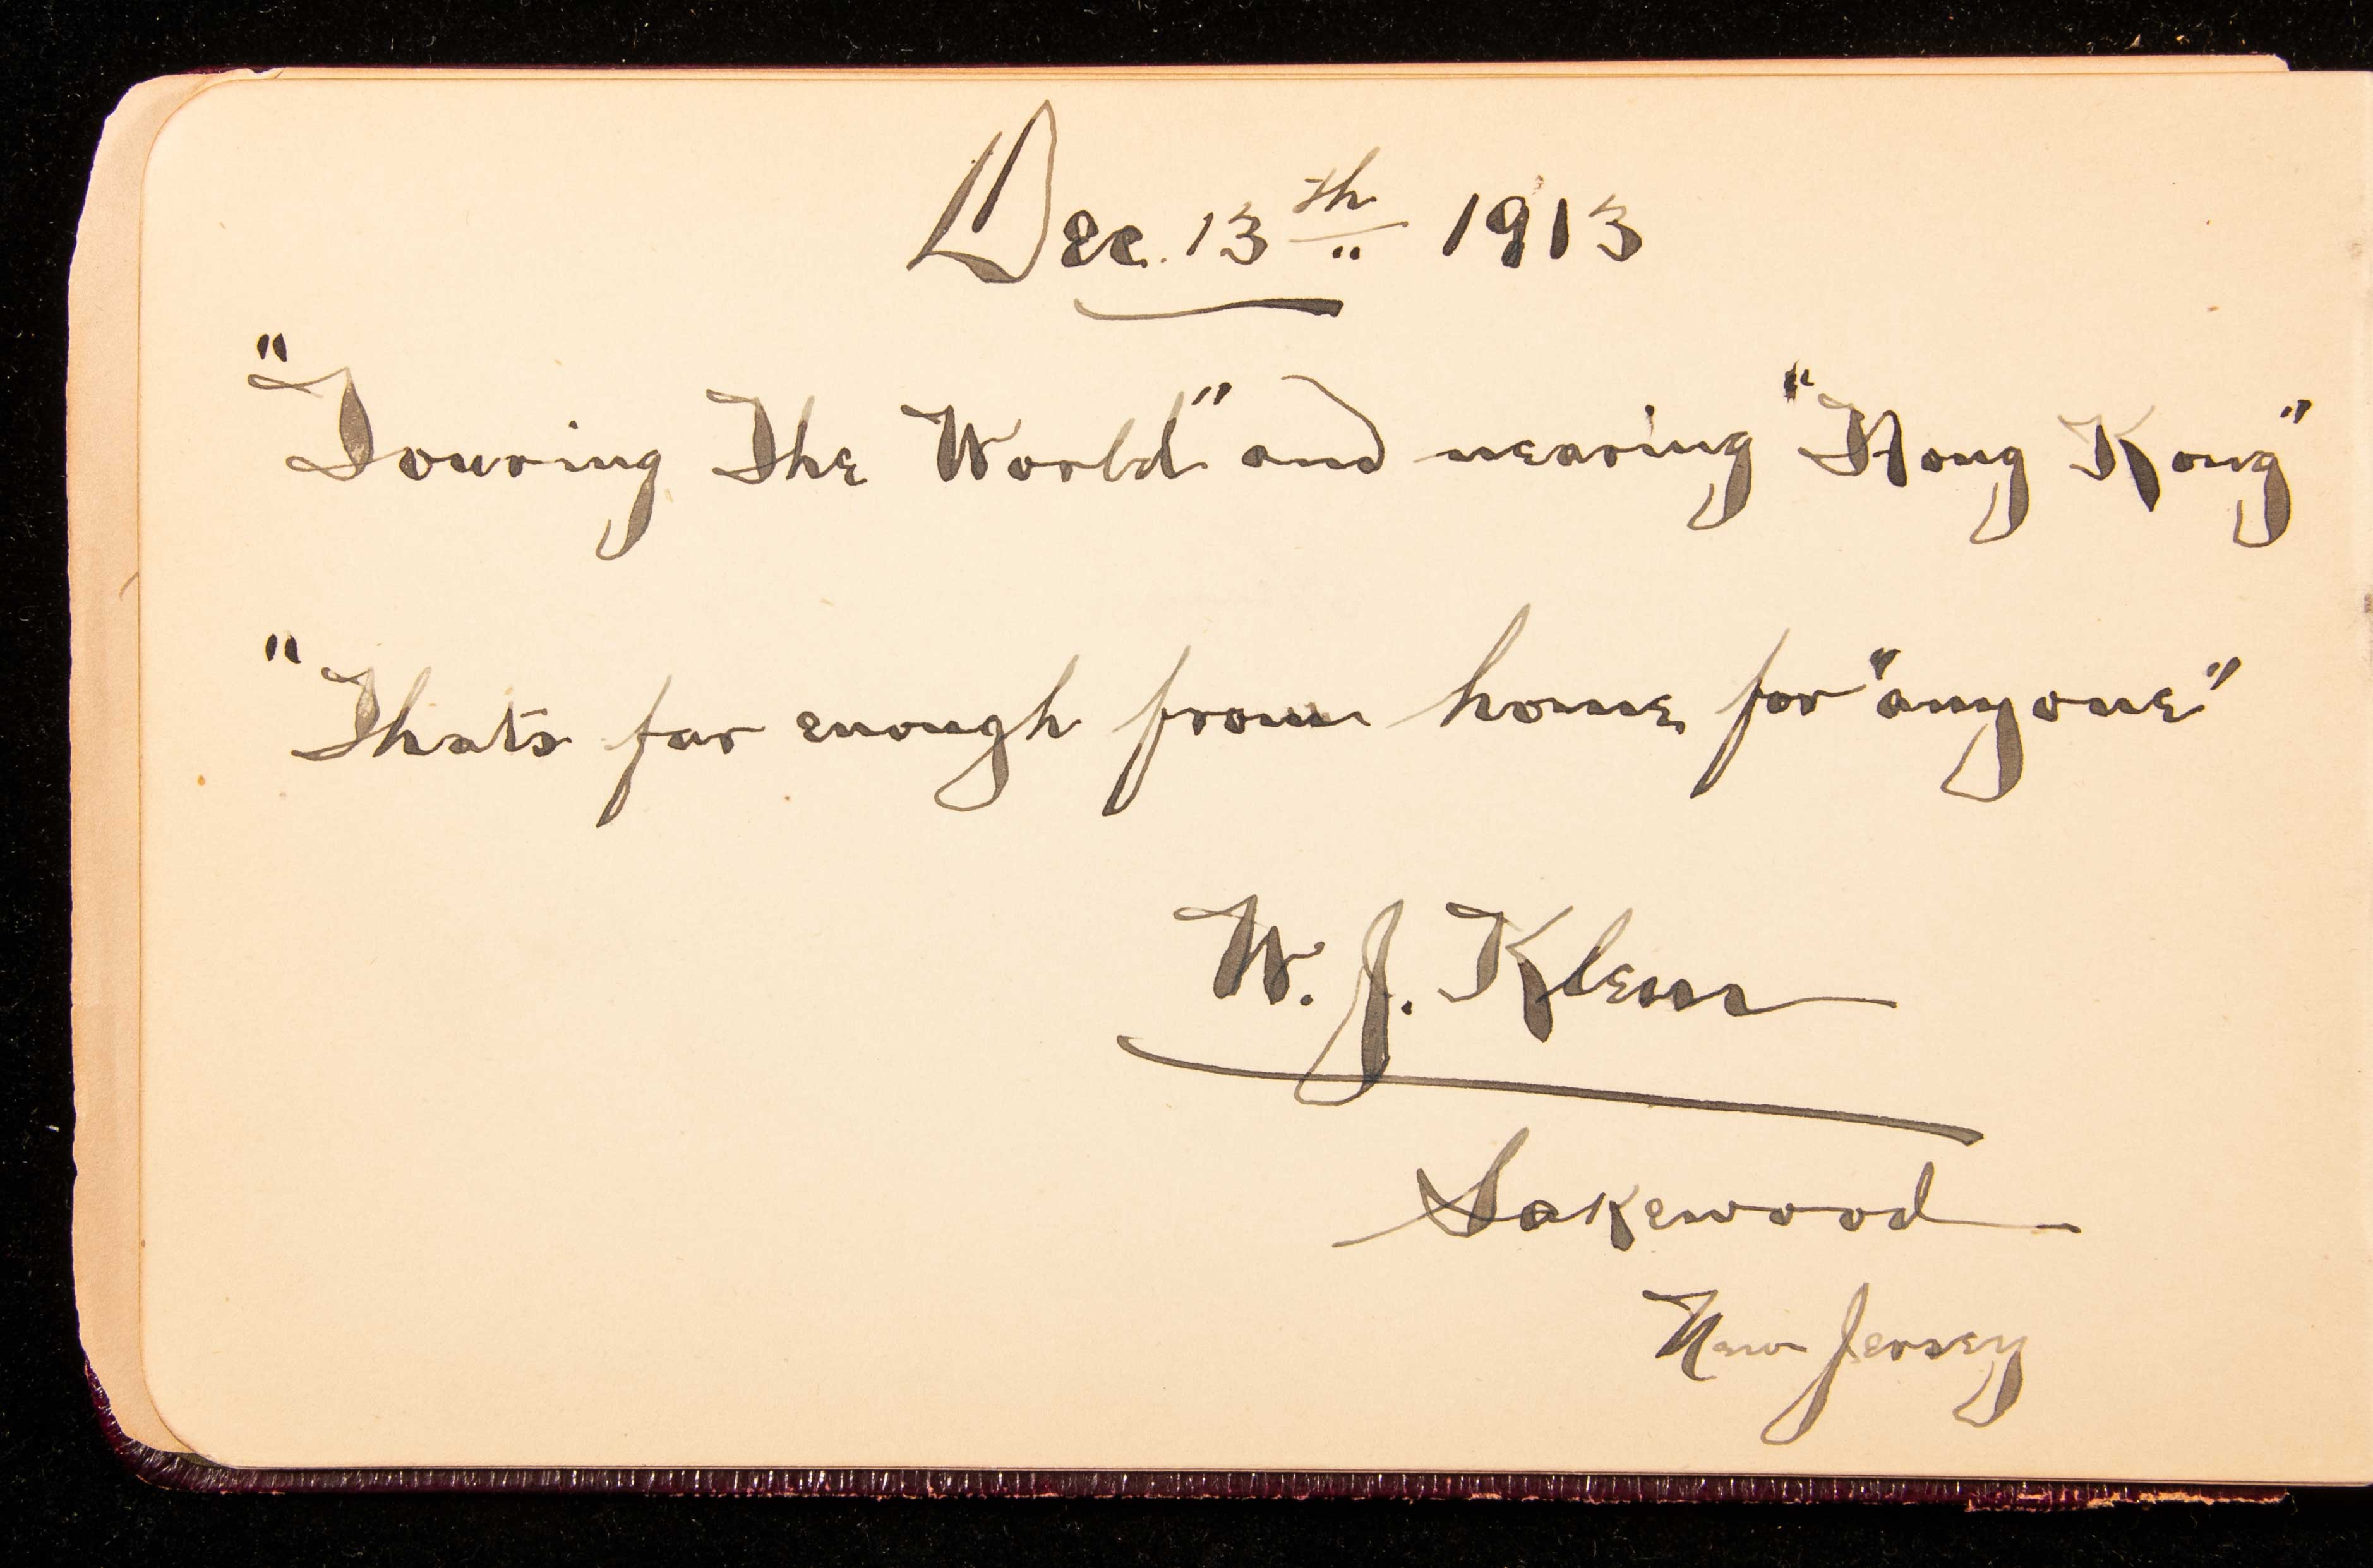 Dec. 13th 1913
"Touring The World" and nearing "Hong Kong"
"Thats far enough from home for "anyone"
W. J. Klem
Lakewood
New Jersey